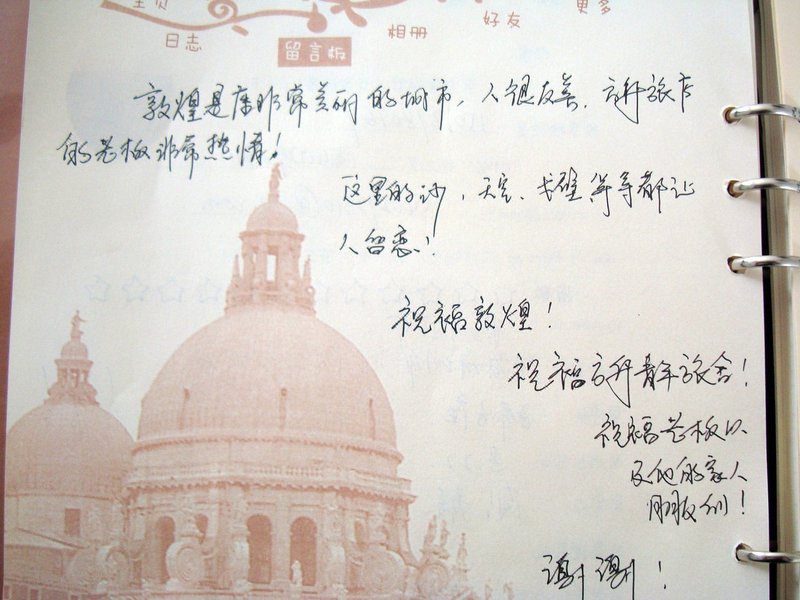 主页
日志
留言板
相册
好友
更多
敦煌是座非常美丽的城市，人很友善，方升旅店
的老板非常热情！
这里的沙，天空、戈壁等等都让
人留恋！
祝福敦煌！
祝福方升青年旅舍！
祝福老板以
及他的家人
朋友们！
谢谢！